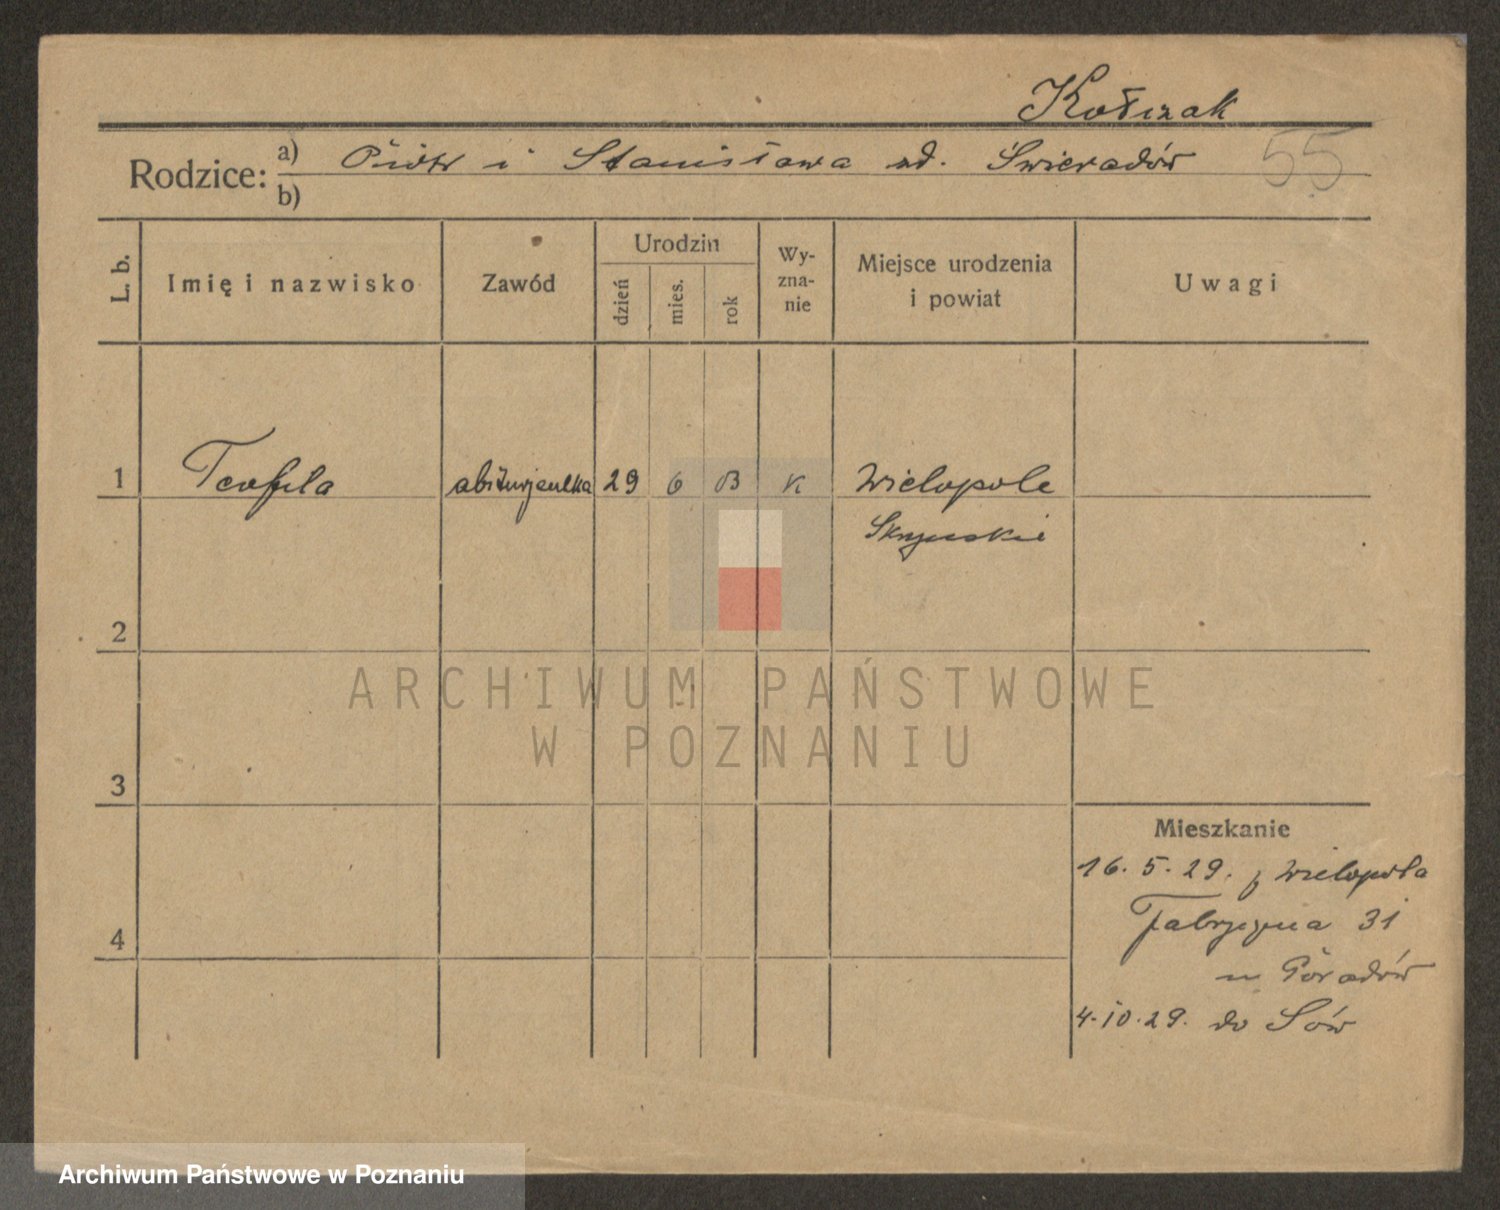 Kołczak
Rodzice:
a) Piotr i Stanisława zd. Świeradów
55
b)
L. b.
Imię i nazwisko
Zawód
Urodzin
dzień
mies.
rok
Wy-
zna-
nie
Miejsce urodzenia
i powiat
Uwagi
1 Teofila abiturjentka 29 6 K Wielopole
2
3
Mieszkanie
16.5.29. z Wielopola
4
Fabryczna 31
4.10.29. do
ARCHIWUM PAŃSTWOWE
W POZNANIU
Archiwum Państwowe w Poznaniu